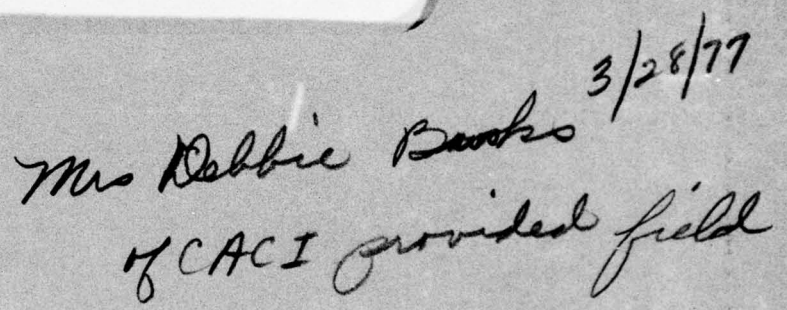 3/28/77
Mrs Debbie Brooks
of CACI provided field